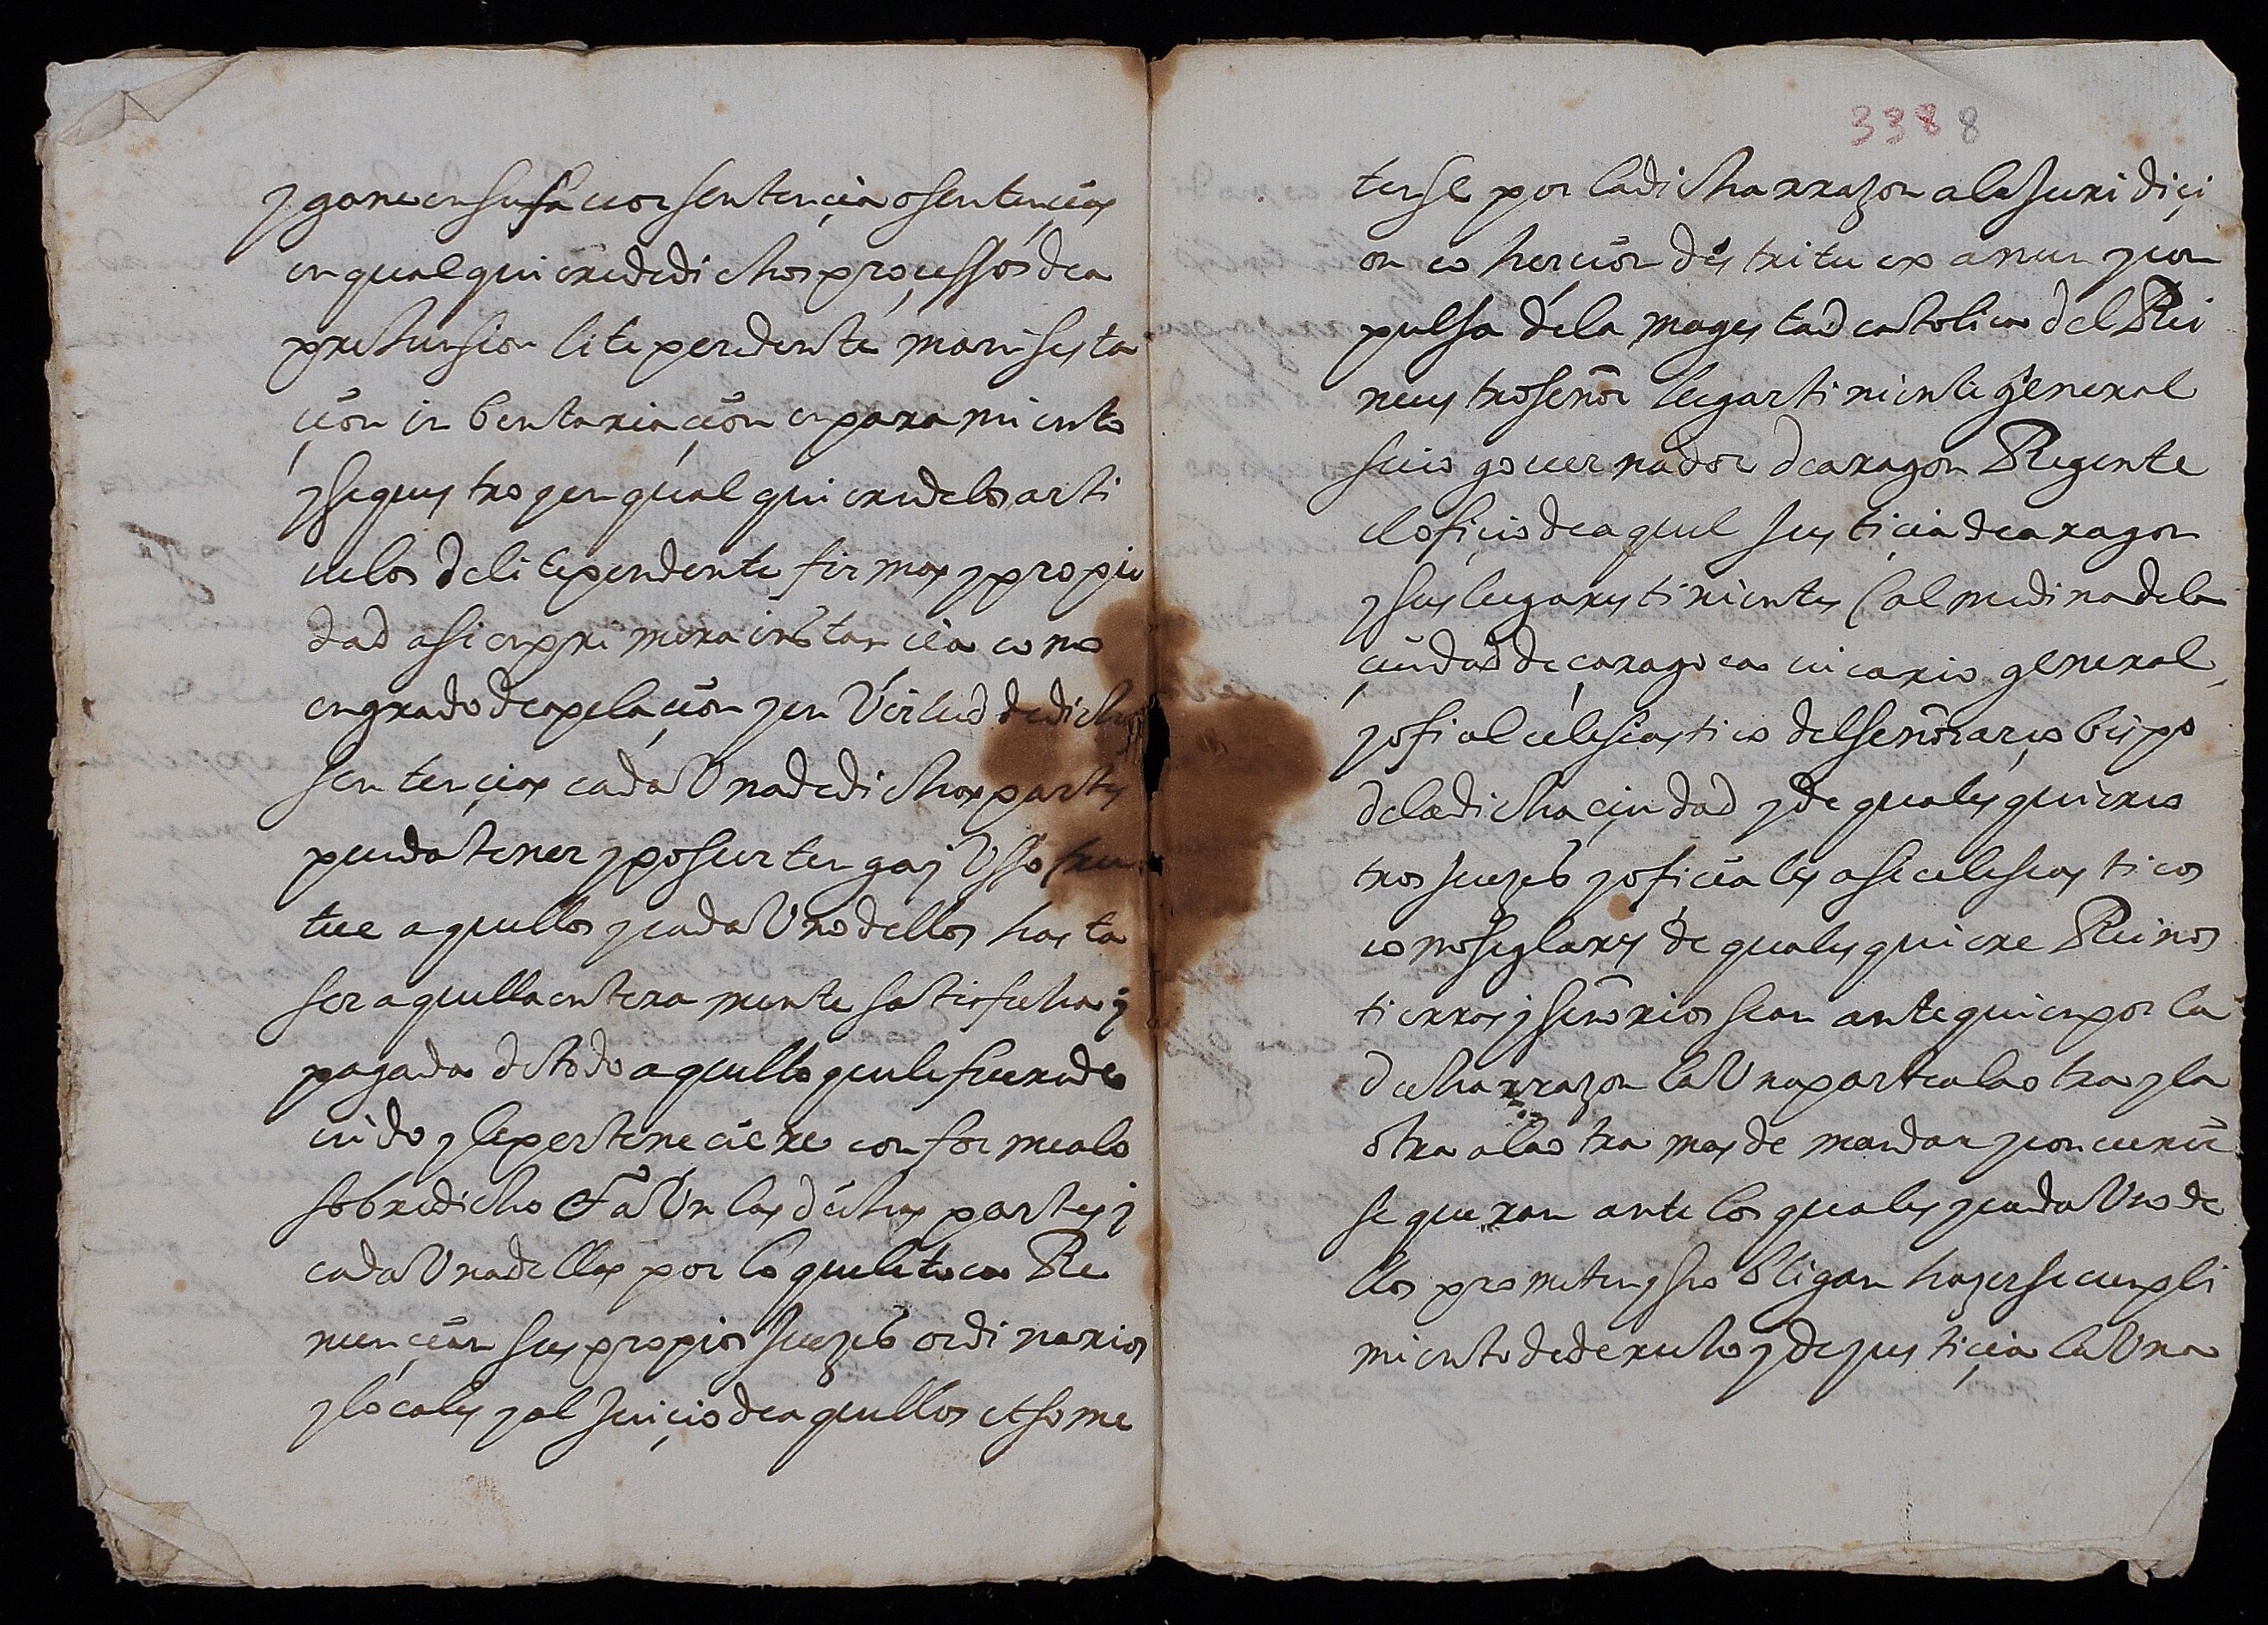 y gane en su fauor sentençia o sentençias
en qualquiere de dichos proçessos de a
prehension litependente manifesta
çion inbentariaçion enparamiento
y sequestro y en qualquiere de los arti
culos de litependente firmas y propie
dad assi en primera instancia como
en grado de apelaçion y en Virtud de dichas
sentençias cada Vna de dichas partes
pueda tener y posseer tenga y Vssofru
tue aquellos y cada Vno dellos hasta
ser aquella enteramente satisfecha y
pagada de todo aquello que le fuere de
uido y le perteneciere conforme a lo
sobredicho Et aUn las dichas partes y
cada Vna dellas por lo que le toca Re
nunçian sus propios Juezes ordinarios
y locales y al Juiçio de aquellos et some
3388
terse por la dicha rrazon a la Juridiçi
on cohercion destritu examen y con
pulsa de la magestad catolica del Rei
nuestro señor lugartiniente general
suio gouernador de aragon Regente
el ofiçio de aquel Justiçia de aragon
y sus lugarestinientes çalmedina de la
çiudad de çaragoça vicario general
y ofiçial eclesiastico del señor arçobispo
de la dicha çiudad y de qualesquiere o
tros Juezes y ofiçiales assi eclesiasticos
como seglares de qualesquiere Reinos
tierras y señorios sean ante quien por la
dicha rrazon la Vna parte a la otra y la
otra a la otra mas demandar y conuenir
se queran ante los quales y cada Vno de
llos prometen y se obligan hazerse cunpli
miento de derecho y de justiçia la Vna